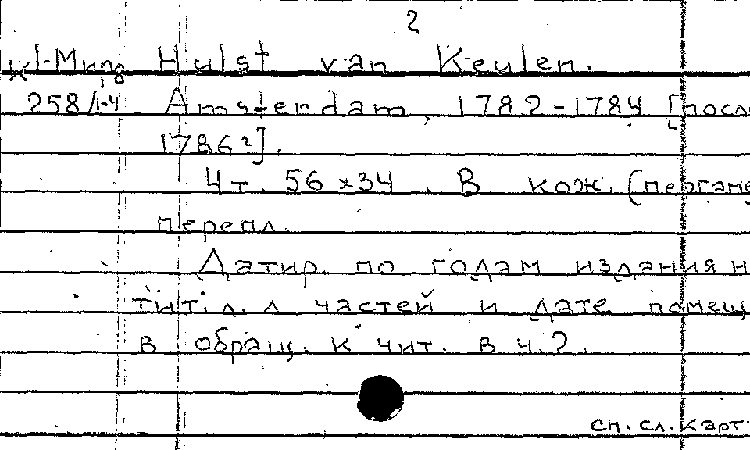 2
К1-Мир Hulst van Keulen.
258/1-4 Amsterdam, 1782-1784 [посл
1786г].
4т. 56x34. В кож. (пергаме
перепл.
Датир. по годам издания н
тит. л. л частей и дате помещ
в обращ. к чит. в ч. 2.
См. сл. карт